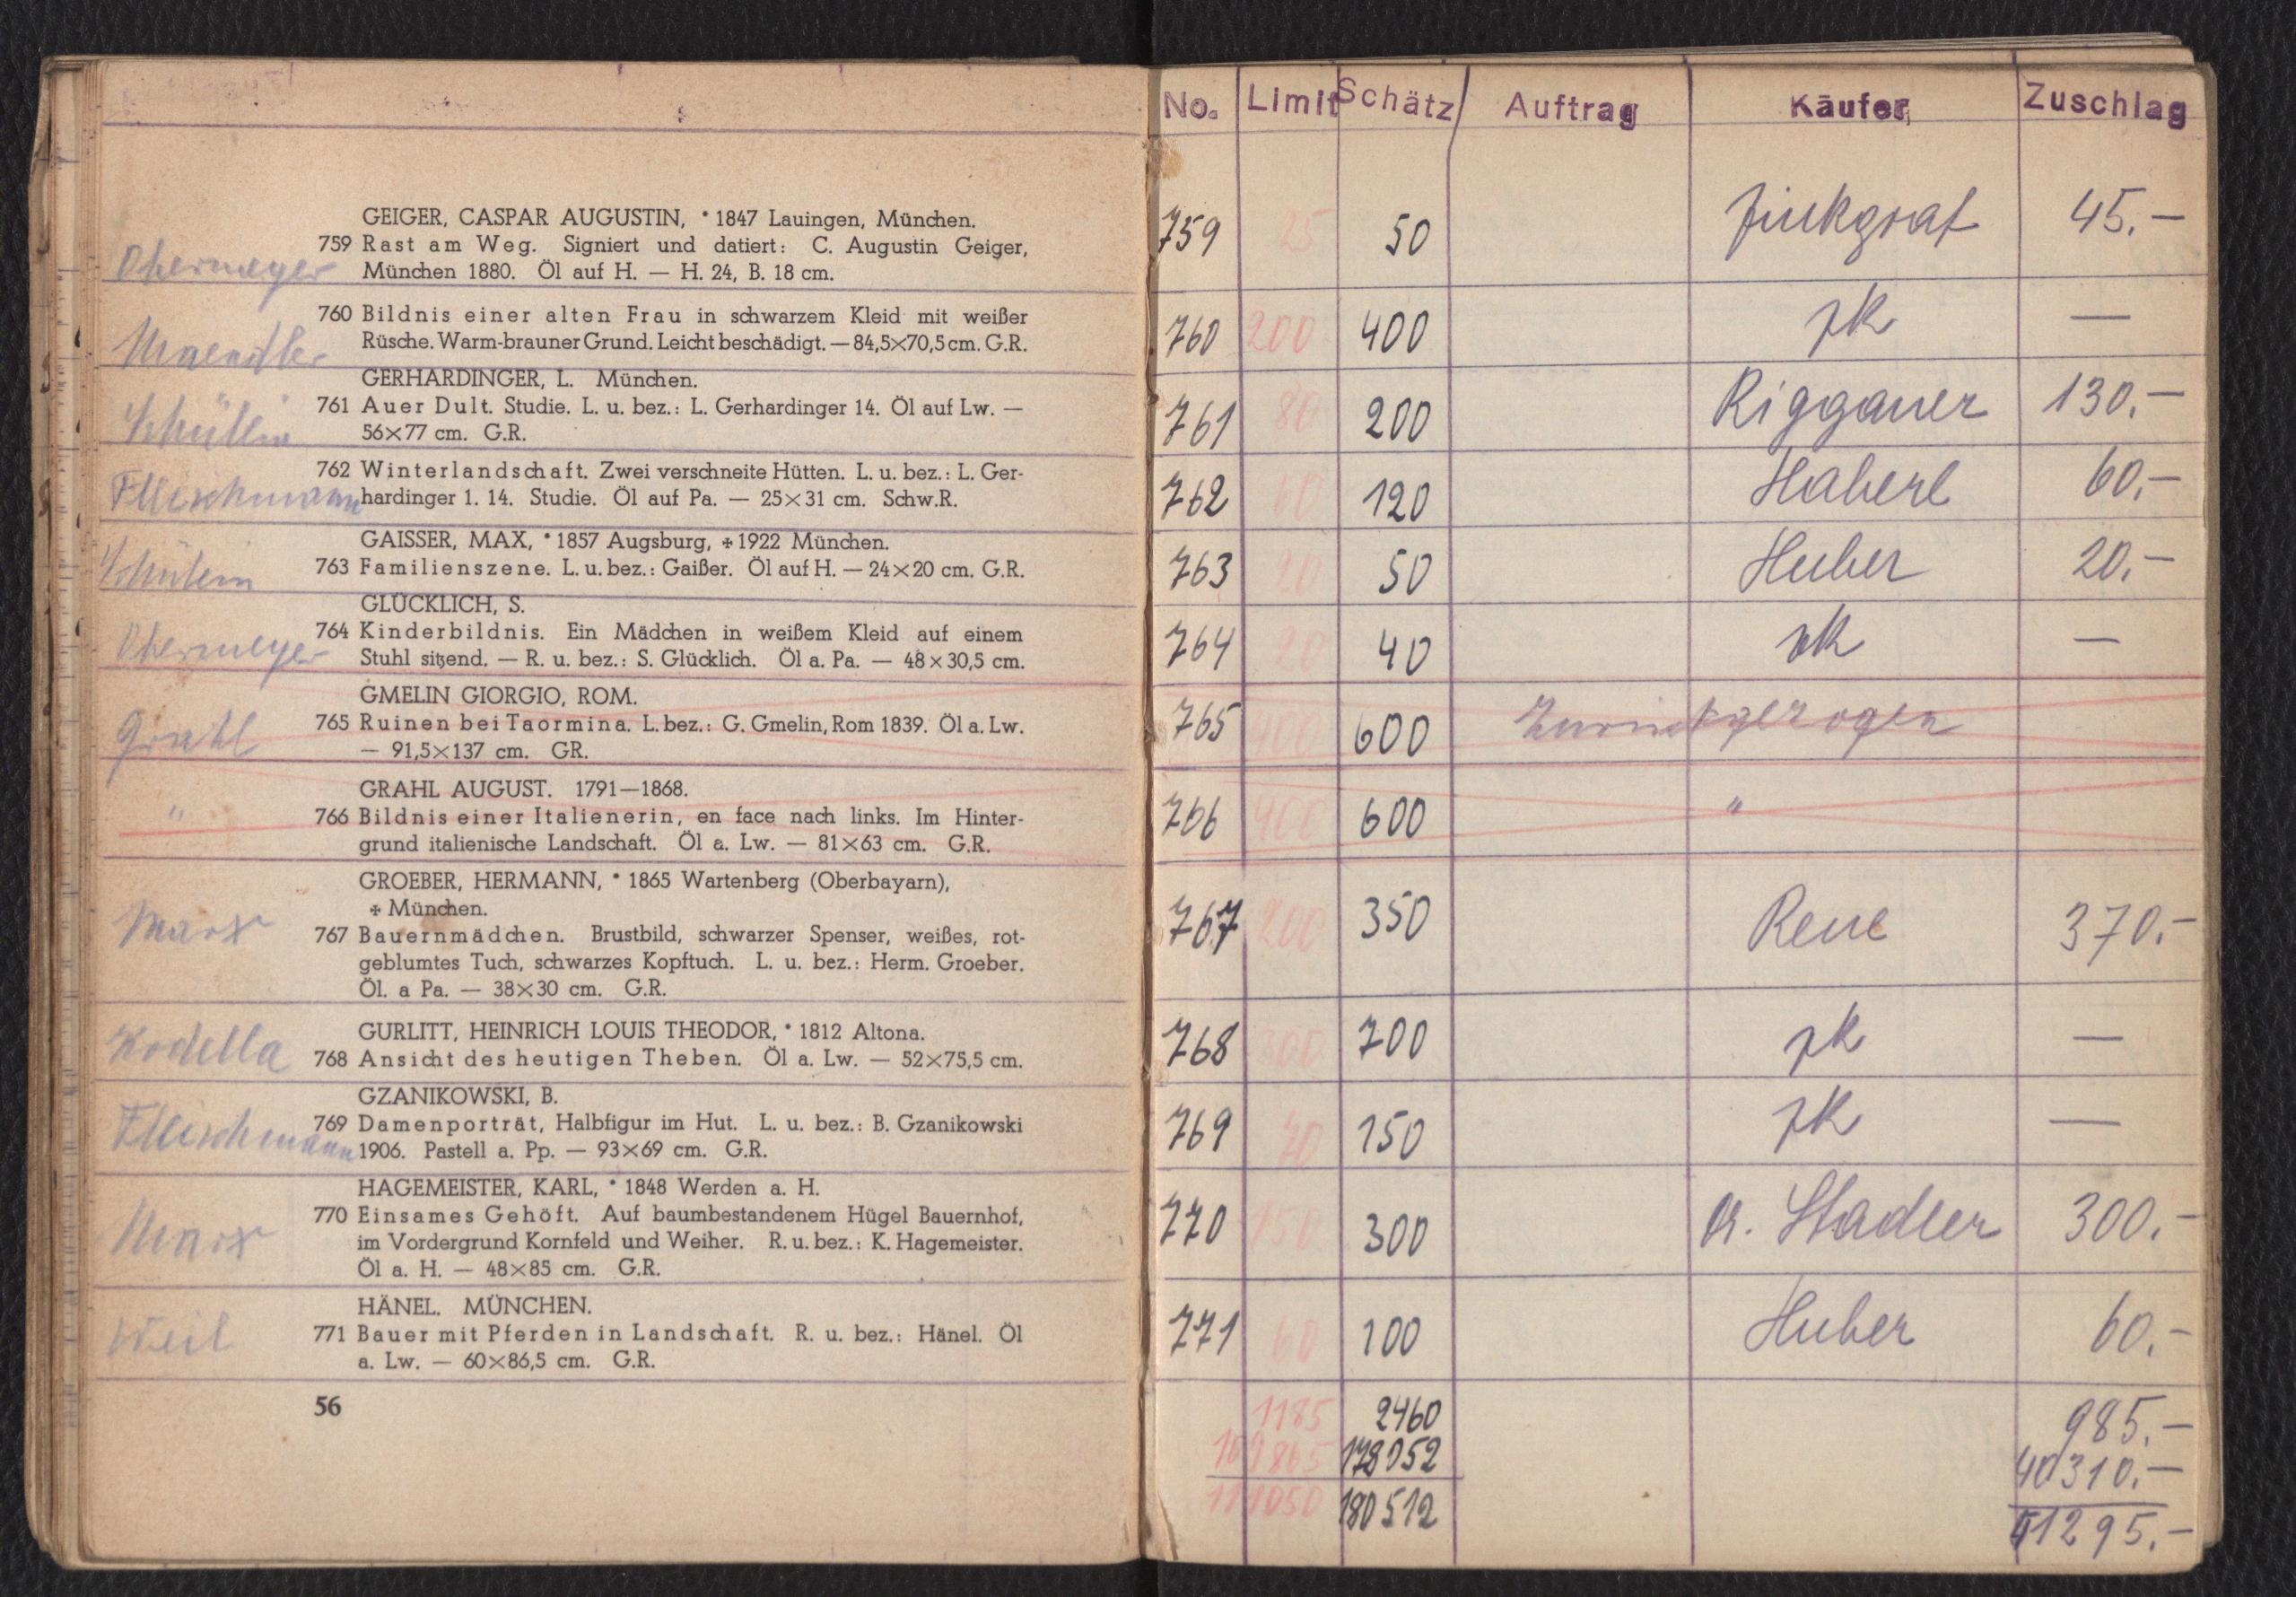 GEIGER, CASPAR AUGUSTIN, * 1847 Lauingen, München.
759 Rast am Weg. Signiert und datiert: C. Augustin Geiger,
Obermeyer München 1880. Öl auf H. — H. 24, B. 18 cm.
760 Bildnis einer alten Frau in schwarzem Kleid mit weißer
Maendler Rüsche. Warm-brauner Grund. Leicht beschädigt. — 84,5×70,5 cm. G.R.
GERHARDINGER, L. München.
761 Auer Dult. Studie. L. u. bez.: L. Gerhardinger 14. Öl auf Lw. —
Schülein 56×77 cm. G.R.
762 Winterlandschaft. Zwei verschneite Hütten. L. u. bez.: L. Ger-
Fleischmann hardinger 1. 14. Studie. Öl auf Pa. — 25×31 cm. Schw.R.
GAISSER, MAX, * 1857 Augsburg, ✠ 1922 München.
Schülein 763 Familienszene. L. u. bez.: Gaißer. Öl auf H. — 24×20 cm. G.R.
GLÜCKLICH, S.
Obermeyer 764 Kinderbildnis. Ein Mädchen in weißem Kleid auf einem
Stuhl sitzend. — R. u. bez.: S. Glücklich. Öl a. Pa. — 48×30,5 cm.
GMELIN GIORGIO, ROM.
Grahl 765 Ruinen bei Taormina. L. bez.: G. Gmelin, Rom 1839. Öl a. Lw.
— 91,5×137 cm. GR.
GRAHL AUGUST. 1791—1868.
" 766 Bildnis einer Italienerin, en face nach links. Im Hinter-
grund italienische Landschaft. Öl a. Lw. — 81×63 cm. G.R.
GROEBER, HERMANN, * 1865 Wartenberg (Oberbayarn),
✠ München.
Marx 767 Bauernmädchen. Brustbild, schwarzer Spenser, weißes, rot-
geblumtes Tuch, schwarzes Kopftuch. L. u. bez.: Herm. Groeber.
Öl. a Pa. — 38×30 cm. G.R.
GURLITT, HEINRICH LOUIS THEODOR, * 1812 Altona.
Kodella 768 Ansicht des heutigen Theben. Öl a. Lw. — 52×75,5 cm.
GZANIKOWSKI, B.
Fleischmann 769 Damenporträt, Halbfigur im Hut. L. u. bez.: B. Gzanikowski
1906. Pastell a. Pp. — 93×69 cm. G.R.
HAGEMEISTER, KARL, * 1848 Werden a. H.
Marx 770 Einsames Gehöft. Auf baumbestandenem Hügel Bauernhof,
im Vordergrund Kornfeld und Weiher. R. u. bez.: K. Hagemeister.
Öl a. H. — 48×85 cm. G.R.
HÄNEL. MÜNCHEN.
Weil 771 Bauer mit Pferden in Landschaft. R. u. bez.: Hänel. Öl
a. Lw. — 60×86,5 cm. G.R.
56
No. Limit Schätz Auftrag Käufer Zuschlag
759 25 50 Finkgraf 45.—
760 200 400 zk —
761 80 200 Rigganer 130.—
762 60 120 Haberl 60.—
763 20 50 Huber 20.—
764 20 40 zk —
765 400 600 Zurückgezogen
766 400 600 "
767 200 350 Reue 370.—
768 300 700 zk —
769 70 150 zk —
770 150 300 A. Stadler 300.—
771 60 100 Huber 60.—
1185 2460 985.—
109865 178052 40310.—
111050 180512 41295.—